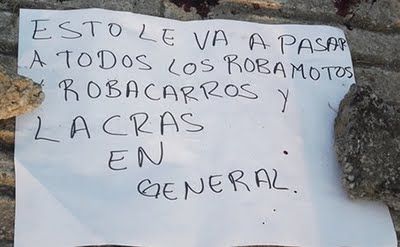 ESTO LE VA A PASAR
A TODOS LOS ROBAMOTOS
Y ROBACARROS Y
LACRAS
EN
GENERAL.